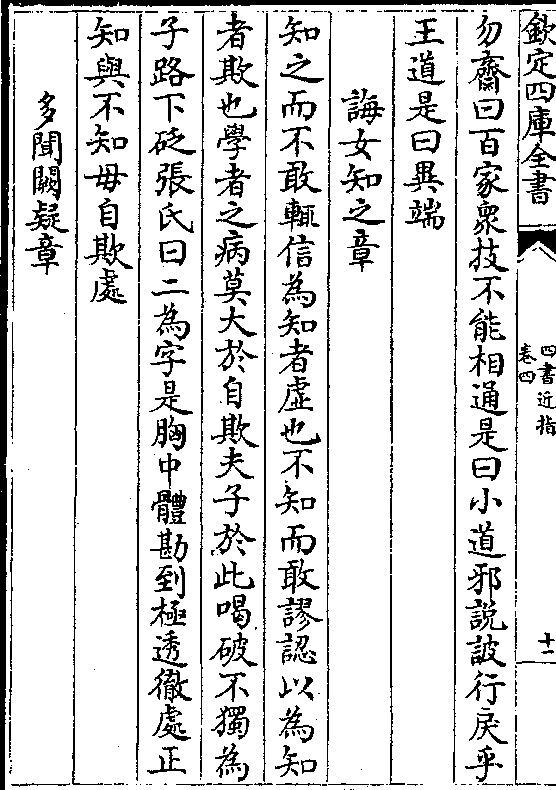 欽定四庫全書
四書近指
卷四
十一
勿齋曰百家衆技不能相通是曰小道邪說詖行戾乎
王道是曰異端
誨女知之章
知之而不敢輒信為知者虛也不知而敢謬認以為知
者欺也學者之病莫大於自欺夫子於此喝破不獨為
子路下砭張氏曰二為字是胸中體勘到極透徹處正
知與不知毋自欺處
多聞闕疑章